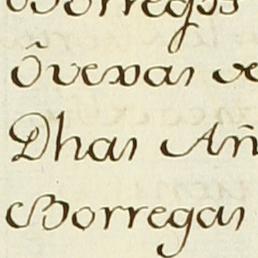 Borregos
Õvexas de
Dhas Añ
Borregas